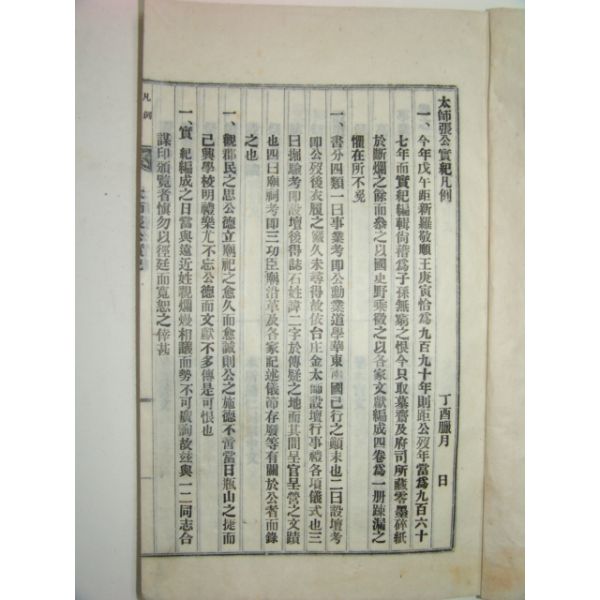 太師張公實紀凡例
丁酉臘月　日
一、今年戊午距新羅敬順王庚寅恰爲九百九十年則距公歿年當爲九百六十
七年而實紀編輯尙稽爲子孫無窮之恨今只取墓齋及府司所藏零墨碎紙
於斷爛之餘而參之以國史野乘徵之以各家文獻編成四卷爲一册踈漏之
懼在所不免
一、書分四類一曰事業考即公勳業道學華東兩國已行之顚末也二曰設壇考
即公歿後衣履之藏久未尋得故依台庄金太師設壇行事禮各項儀式也三
曰掘驗考即設壇後得誌石姓諱二字於傳疑之地而其間呈官呈營之文蹟
也四曰廟祠考即三功臣廟沿革及各家記述儀節存癈等有關於公者而錄
之也
一、觀郡民之思公德立廟祀之愈久而愈誠則公之施德不啻當日瓶山之捷而
已興學校明禮樂尤不忘公德而文獻不多傳是可恨也
一、實紀編成之日當與遠近姓親爛熳相議而勢不可廣詢故玆與一二同志合
謀印頒覽者愼勿以徑廷而寬恕之幸甚
凡例